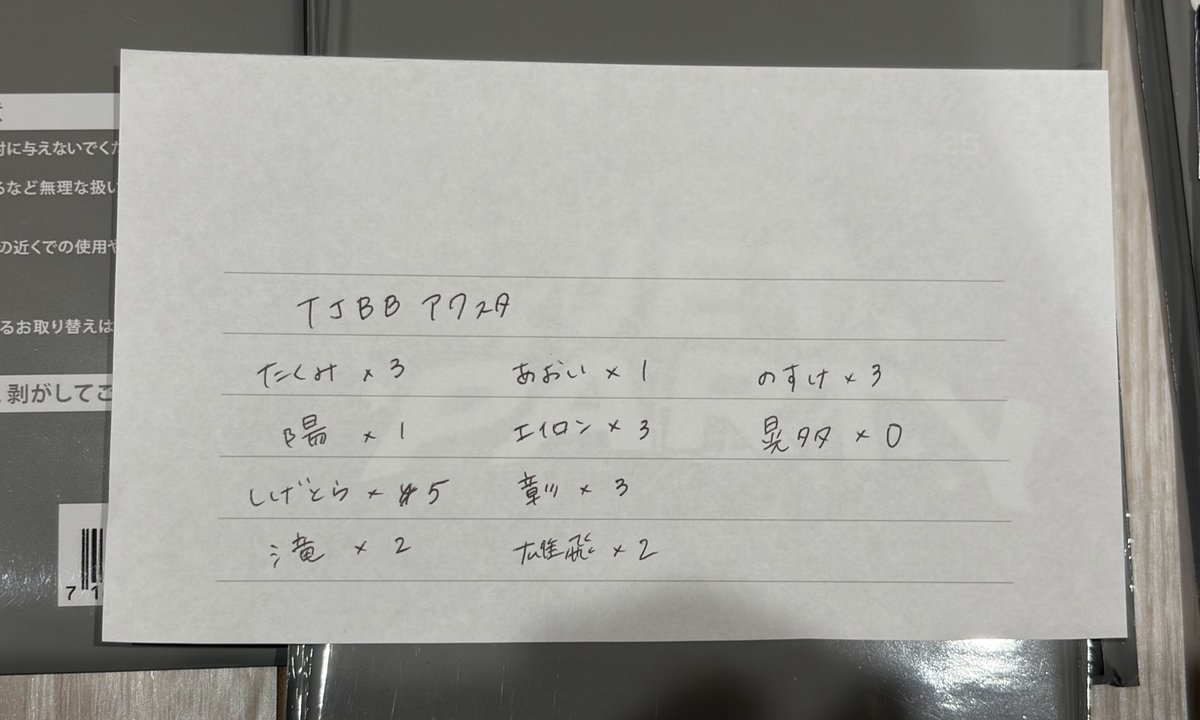 TJBB アクスタ
たくみ × 3 あおい × 1 のすけ × 3
陽 × 1 エイロン × 3 晃多 × 0
しげとら × 5 彰 × 3
滝 × 2 雄飛 × 2
に与えないでくだ
るなど無理な扱い
の近くでの使用や
るお取り替えは
剥がしてこ
7 1